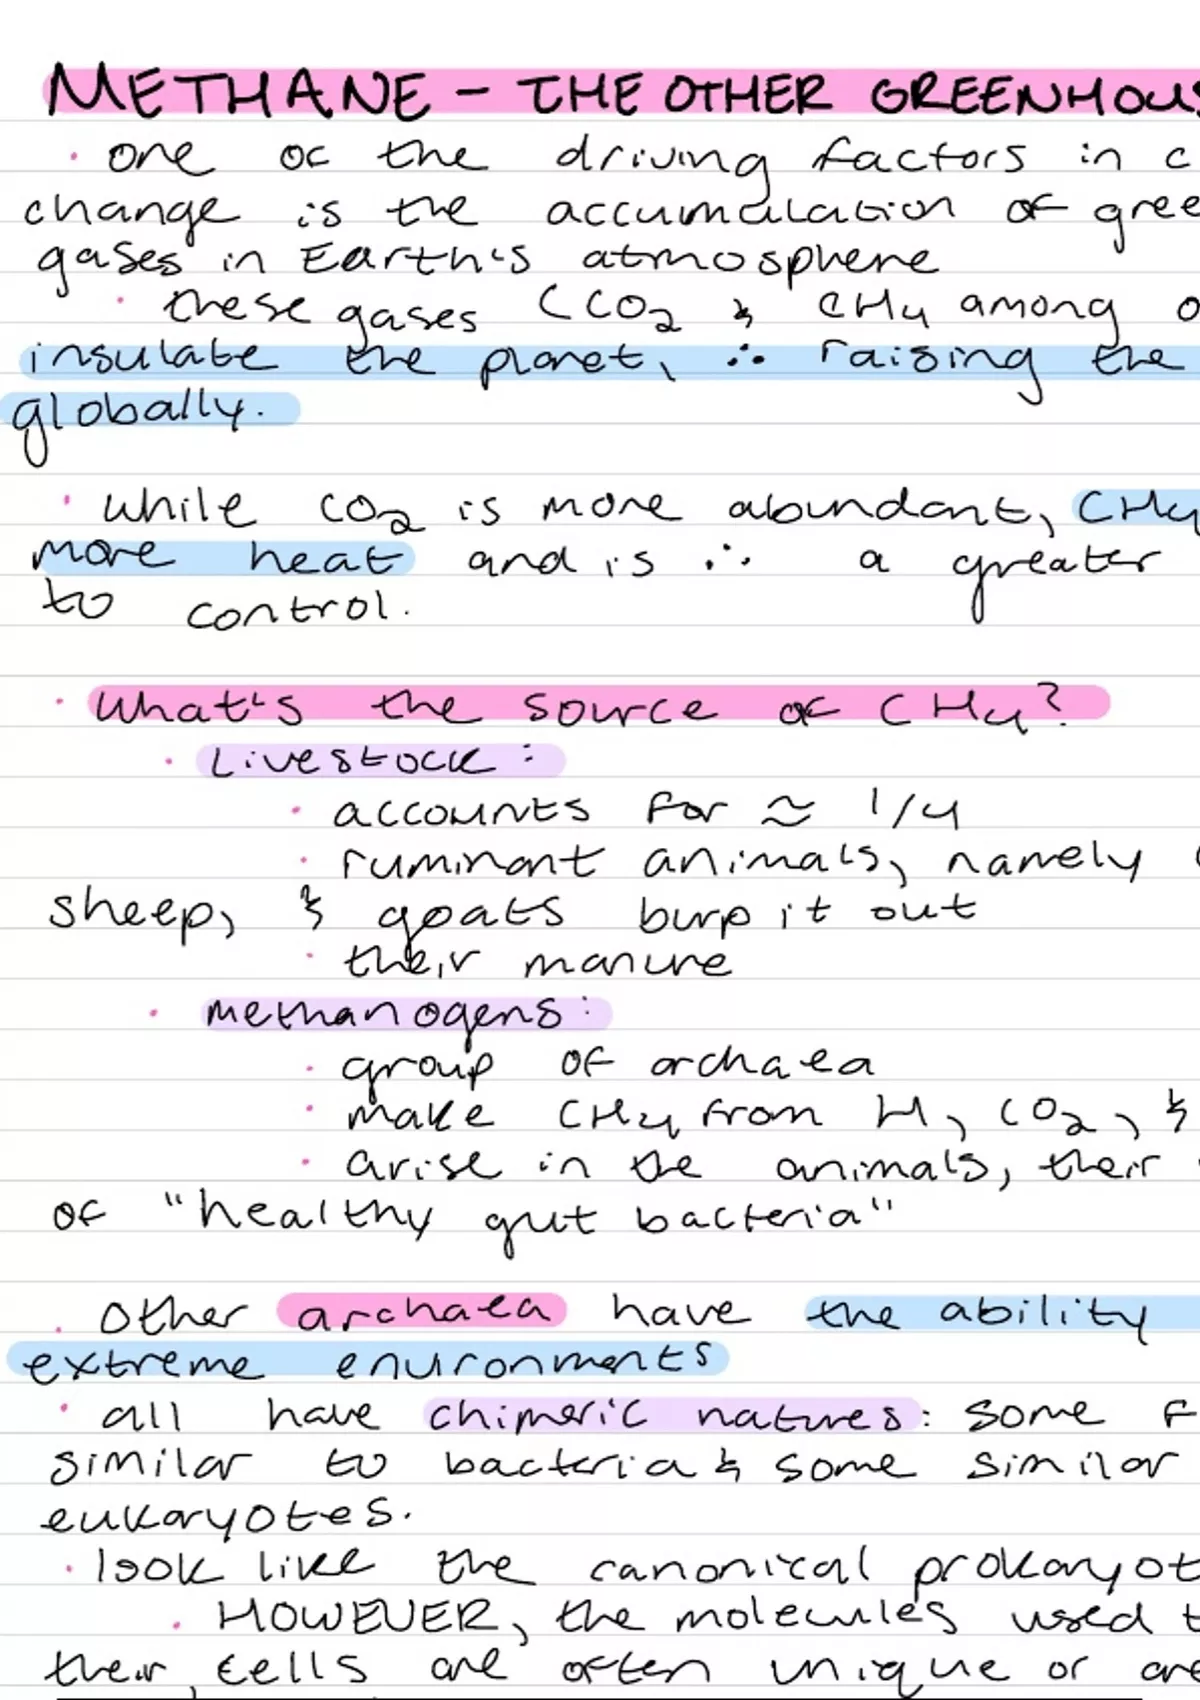 METHANE - THE OTHER GREENHOUS
· one of the driving factors in c
change is the accumulation of gree
gases in Earth's atmosphere
· these gases (CO2 & CH4 among o
insulate the planet, ∴ raising the
globally.
· while CO2 is more abundant, CH4
more heat and is ∴ a greater
to control.
· What's the source of CH4?
· Livestock:
· accounts for ≈ 1/4
· ruminant animals, namely
sheep, & goats burp it out
· their manure
· methanogens:
· group of archaea
· make CH4 from H, CO2, &
· arise in the animals, their
of "healthy gut bacteria"
· Other archaea have the ability
extreme environments
· all have chimeric natures: some f
similar to bacteria & some similar
eukaryotes.
· look like the canonical prokaryot
· HOWEVER, the molecules used t
their cells are often unique or are